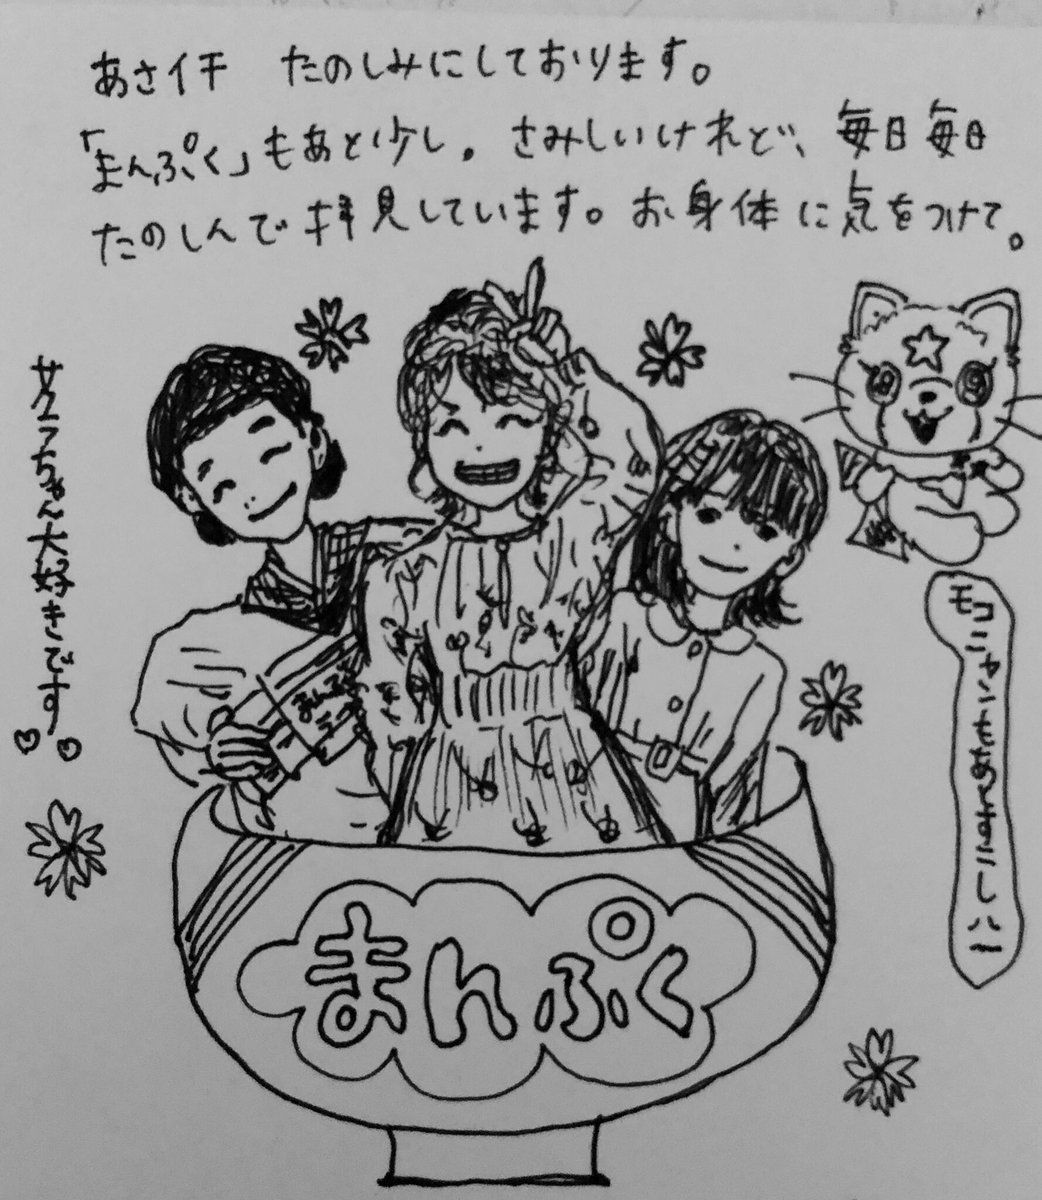 あさイチ たのしみにしております。
「まんぷく」もあと少し。さみしいけれど、毎日毎日
たのしんで拝見しています。お身体に気をつけて。
サクラちゃん大好きです♡♡
まんぷく
まんぷく